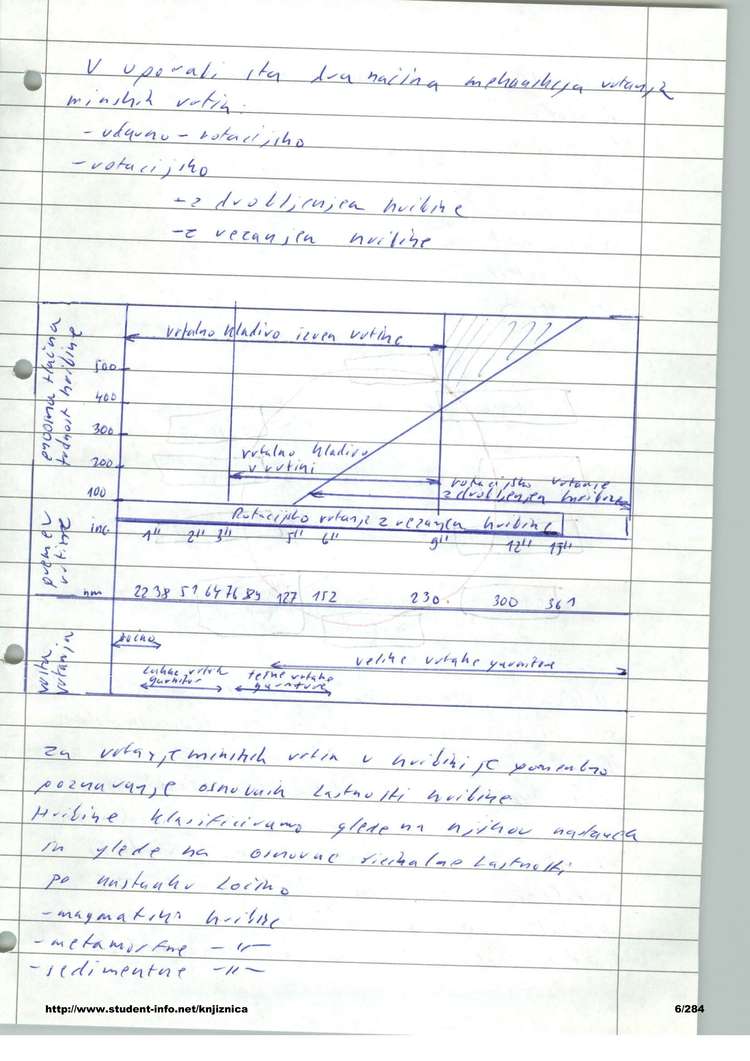 V uporabi sta dva načina mehanskega vrtanja
minskih vrtin:
- udarno - rotacijsko
- rotacijsko
- z drobljenjem hribine
- z rezanjem hribine
enoosna tlačna
trdnost hribine
vrtalno kladivo izven vrtine
500
400
300
200
100
vrtalno kladivo
v vrtini
rotacijsko vrtanje
z drobljenjem hribine
Rotacijsko vrtanje z rezanjem hribine
premer
vrtine
inc
1" 2" 3" 5" 6" 9" 12" 15"
mm
22 38 51 64 76 89 127 152 230 300 361
vrsta
vrtanja
ročno
velike vrtalne garniture
lahke vrtalne
garnitur
težke vrtalne
garniture
za vrtanje minskih vrtin v hribini je pomembno
poznavanje osnovnih lastnosti hribine
Hribine klasificiramo glede na njihov nastanek
in glede na osnovne fizikalne lastnosti
po nastanku ločimo
- magmatske hribine
- metamorfne -"-
- sedimentne -"-
http://www.student-info.net/knjiznica
6/284